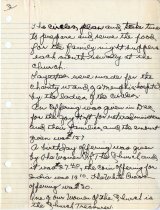 2
The circles plan and take time
to prepare and serve the food
for the family night suppers
each month usually at the
church.
Layettes were made for the
charity ward of a Memphis hospital
by the ladies of the circles.
Our offering was given in Dec
for the joy gift for retired ministers
and their families, and the amount
given was
A birthday offering was given
by the women of the church and
it was $40, the country for
India was 1970. The White Cross
offering was $30.
One of our women of the church is
the Church Treasurer.